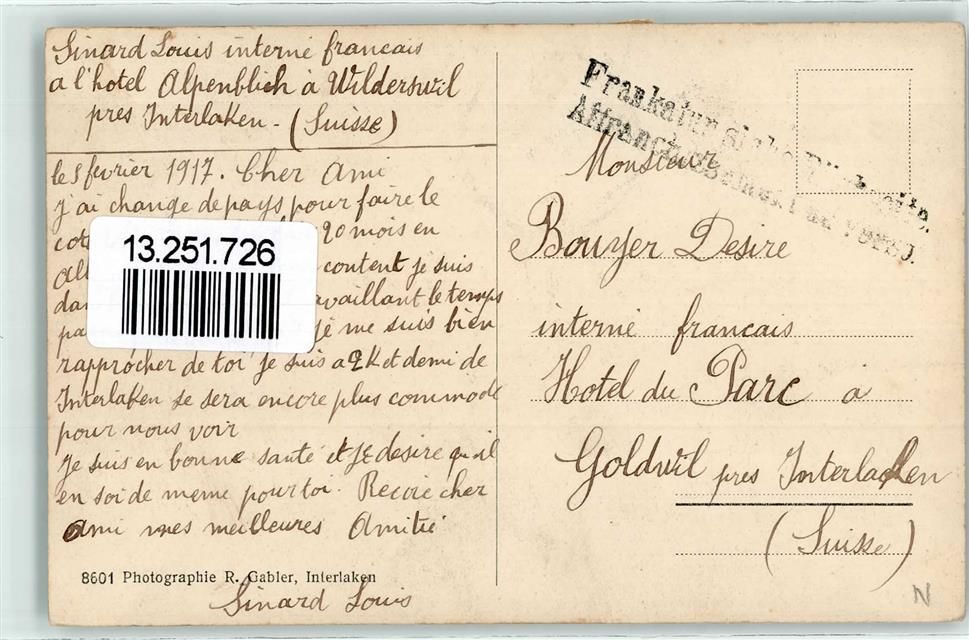 Sinard Louis interné francais
a l'hotel Alpenblich à Wilderswil
pres Interlaken - (Suisse)
le 8 fevrier 1917. Cher Ami
j'ai change de pays pour faire le
20 mois en
content je suis
availlant le temps
je me suis bien
rapprocher de toi je suis a 2 K et demi de
Interlaken se sera encore plus commode
pour nous voir
Je suis en bonne santé et je desire qu'il
en soi de meme pour toi. Recoie cher
Ami mes meilleures Amitié
8601 Photographie R. Gabler, Interlaken
Sinard Louis
13.251.726
Frankatur siehe Rückseite.
Affranchissement au verso.
Monsieur
Bouyer Desire
interné francais
Hotel du Parc à
Goldwil pres Interlaken
(Suisse)
N